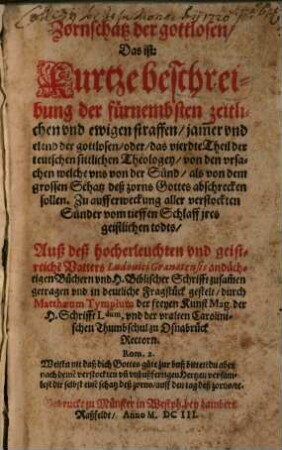 Zornschatz der gottlosen/
Das ist:
Kurtze beschrei-
bung der fürnembsten zeitli-
chen vnd ewigen straffen/ jam̃er vnd
elend der gottlosen/ oder/ das vierdte Theil der
teutschen sittlichen Theologey/ von den vrsa-
chen welche vns von der Sünd/ als von dem
grossen Schatz deß zorns Gottes abschrecken
sollen. Zu aufferweckung aller verstockten
Sünder vom tieffen Schlaff jres
geistlichen todts/
Auß deß hocherleuchten vnd geist-
reiche Vatters Ludouici Granatensis andäch-
tigen Büchern vnd H. Biblischer Schrifft zusam̃en
getragen vnd in deutliche Fragstück gestelt/ durch
Matthæum Tympium der freyen Kunst Mag. der
H. Schrifft L. vnd der vralten Carolini-
schen Thumbschul zu Oßnabrück
Rectorn.
Rom. 2.
Weistu nit daß dich Gottes güte zur buß
nach deinē verstockten vñ Hertzen
lest dir selbst eine schatz deß zorns/ auff den tag deß zorns/
Gedruckt zu Münster in Westph. bey Lambert
Raßfeldt/ Anno M. DC III.